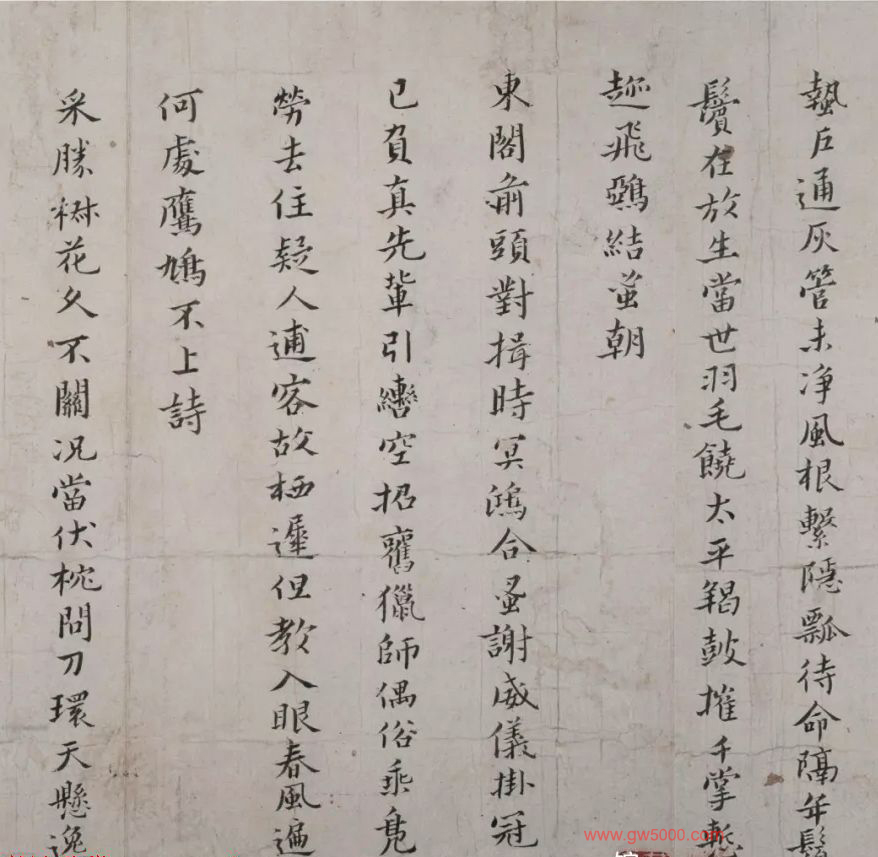 蟄戶通灰管未净風根繫隱瓢待命隔年鬆
鬢在放生當世羽毛饒太平羯鼓摧千掌慙
趂飛鵶結蚤朝
東閣前頭對揖時冥鴻合蚤謝威儀掛冠
已負真先輩引轡空招舊獵師偶俗乘鳧
勞去住疑人逋客故栖遲但教入眼春風遍
何處鷹鳩不上詩
采勝楙花久不關况當伏枕問刀環天懸逸
www.gw5000.com